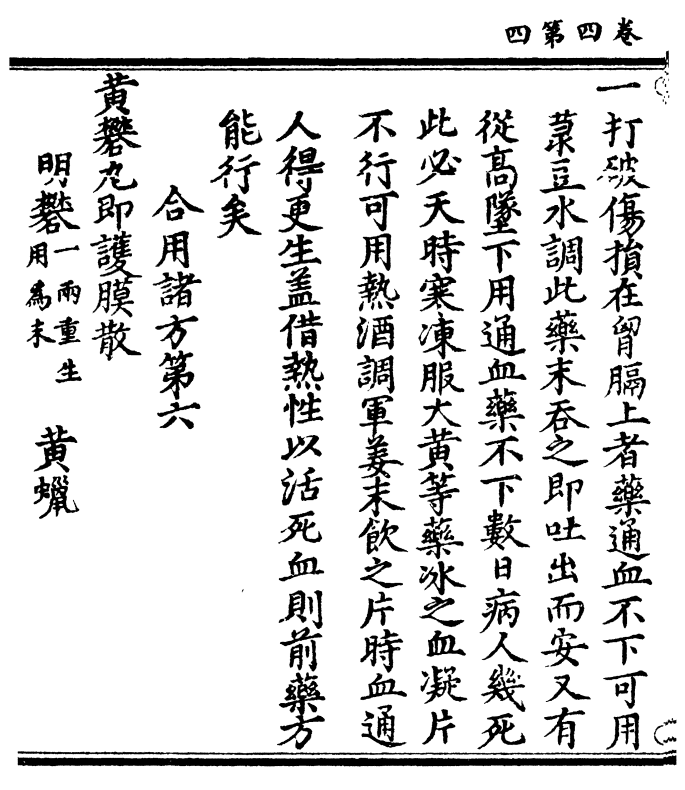 卷四第四
一打破傷損在胷膈上者藥通血不下可用
菉豆水調此藥末吞之即吐出而安又有
從高墜下用通血藥不下數日病人幾死
此必天時寒凍服大黃等藥冰之血凝片
不行可用熱酒調軍姜末飲之片時血通
人得更生盖借熱性以活死血則前藥方
能行矣
合用諸方第六
黃礬丸即護膜散
明礬一兩重生用爲末 黃蠟